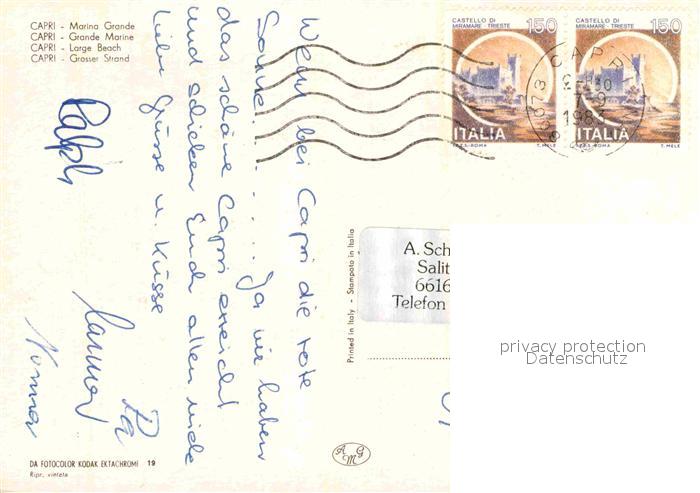 CAPRI - Marina Grande
CAPRI - Grande Marine
CAPRI - Large Beach
CAPRI - Grosser Strand
CASTELLO DI
MIRAMARE - TRIESTE
150
ITALIA
I.P.Z.S.-ROMA
T. MELE
CASTELLO DI
MIRAMARE - TRIESTE
150
ITALIA
I.P.Z.S.-ROMA
T. MELE
80073 CAPRI
1983
Wenn bei Capri die rote
Sonne ........ Ja wir haben
das schöne Capri erreicht
und schicken Euch allen viele
liebe Grüsse u. Küsse
Ralph
Printed in Italy - Stampato in Italia
A. Sch
Salit
6616
Telefon
privacy protection
Datenschutz
A G M
DA FOTOCOLOR KODAK EKTACHROME 19
Ripr. vietata